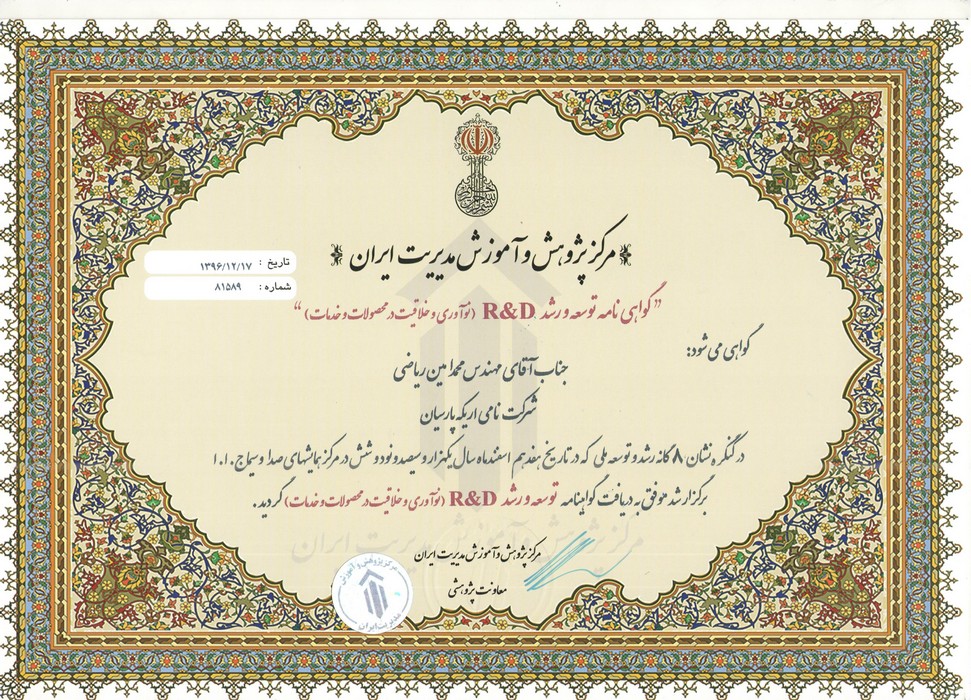 مرکز پژوهش و آموزش مدیریت ایران
تاریخ : ۱۳۹۶/۱۲/۱۷
شماره : ۸۱۵۸۹
”گواهی نامه توسعه و رشد R&D (نوآوری و خلاقیت در محصولات و خدمات)“
گواهی می شود:
جناب آقای مهندس محمد امین ریاضی
شرکت نامی اریکه پارسیان
در کنگره نشان ۸ گانه رشد و توسعه ملی که در تاریخ هفدهم اسفندماه سال یکهزار و سیصد و نود و شش در مرکز همایشهای صدا و سیما ج.ا.ا
برگزار شد موفق به دریافت گواهینامه توسعه و رشد R&D (نوآوری و خلاقیت در محصولات و خدمات) گردید.
مرکز پژوهش و آموزش مدیریت ایران
مرکز پژوهش و آموزش مدیریت ایران
معاونت پژوهشی
مرکز پژوهش و آموزش
مدیریت ایران